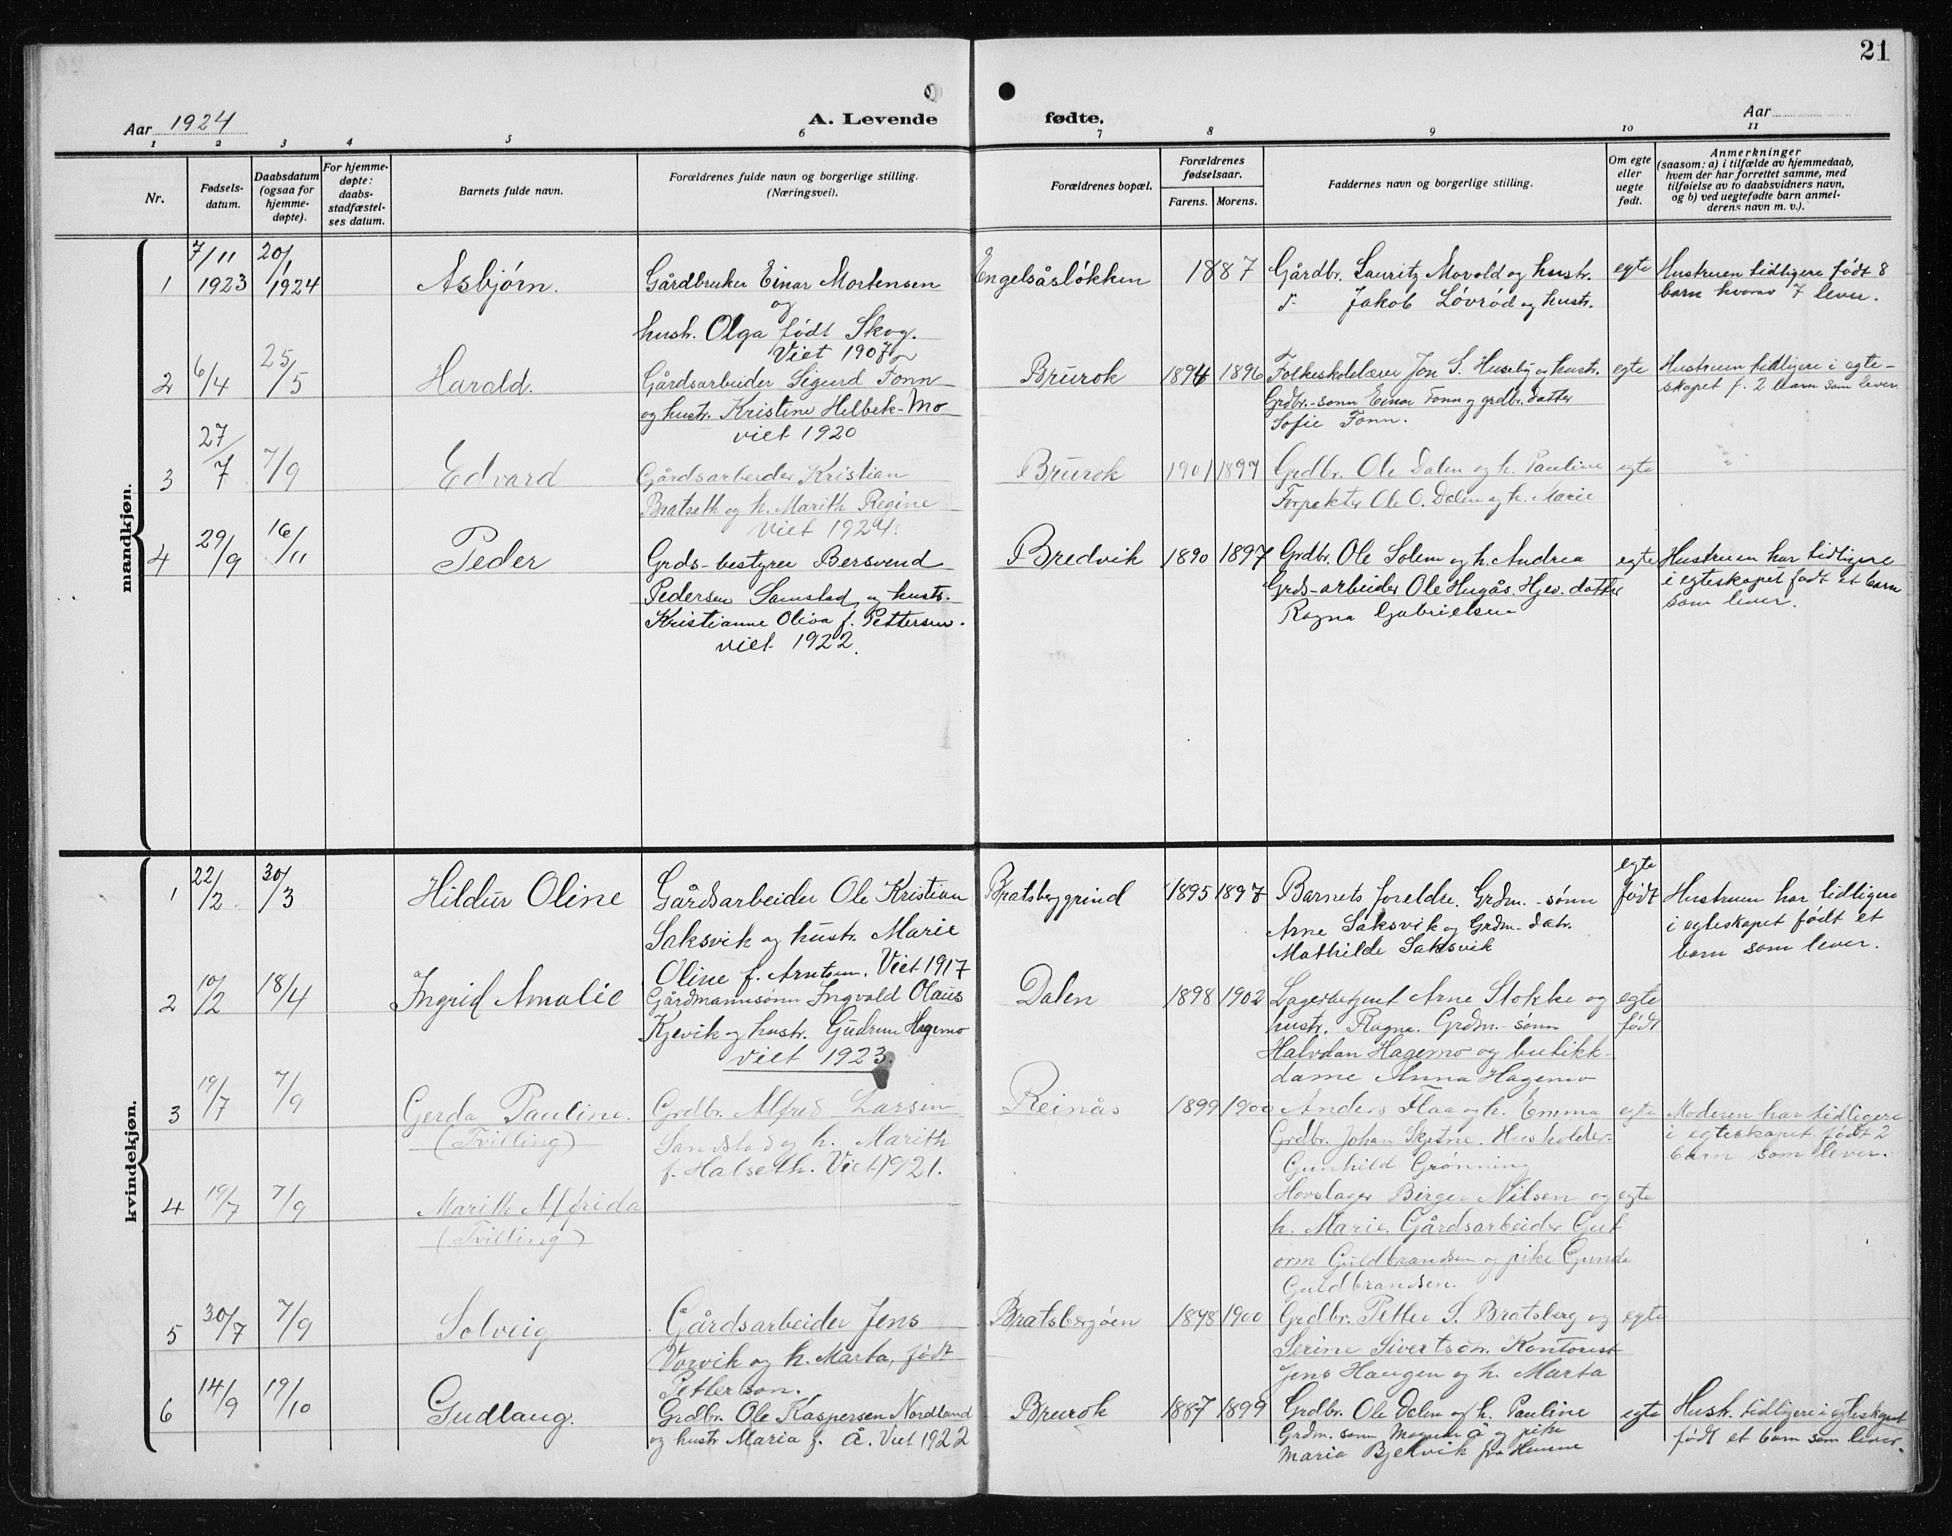 21
Aar 1924
A. Levende
fødte.
Aar
1 2 3 4 5 6 7 8 9 10 11
Nr.
Fødsels-
datum.
Daabsdatum
(ogsaa for
hjemme-
døpte).
For hjemme-
døpte:
daabs-
stadfæstel-
ses datum.
Barnets fulde navn.
Forældrenes fulde navn og borgerlige stilling.
(Næringsvei).
Forældrenes bopæl.
Forældrenes
fødselsaar.
Farens. Morens.
Faddernes navn og borgerlige stilling.
Om egte
eller
uegte
født.
Anmerkninger
(saasom: a) i tilfælde av hjemmedaab,
hvem der har forrettet samme, med
tilføielse av to daabsvidners navn,
og b) ved uegtefødte barn anmel-
derens navn m. v.).
mandkjøn.
1
7/11
1923
20/1
1924
Asbjørn.
Gårdbruker Einar Mortensen
og
hustr. Olga født Skog.
Viet 1907
Engelsåsløkken
1887
Gårdbr. Lauritz Movold og hustr.
Jakob Løvrød og hustr.
egte
Hustruen tidligere født 8
barn hvorav 7 lever.
2
6/4
25/5
Harald.
Gårdsarbeider Sigurd Fonn
og hustr. Kristine Hilbek-Mo
viet 1920
Brurok
1894 1896
Folkeskolelærer Jon S. Huseby og hustr.
Grdbr.-sønn Einar Fonn og grdbr. datter
Sofie Fonn.
egte
Hustruen tidligere i egte-
skapet f. 2 barn som lever.
3
27/7
7/9
Edvard
Gårdsarbeider Kristian
Bratseth og h. Marith Regine
Viet 1924.
Brurok
1901 1897
Grdbr. Ole Dalen og h. Pauline
Forpakter Ole O. Dalen og h. Marie
egte
4
29/9
16/11
Peder
Grds-bestyrer Bersvend
Pedersen Samstad og hustr.
Kristianne Oliva f. Pettersen.
viet 1922.
Bredvik
1890 1897
Grdbr. Ole Solem og h. Andrea
Grds-arbeider Ole Hugås. datter
Ragna Gabrielsen
egte
Hustruen har tidligere
i egteskapet født et barn
som lever.
kvindekjøn.
1
22/2
30/3
Hildur Oline
Gårdsarbeider Ole Kristian
Saksvik og hustr. Marie
Oline f. Arntsen. Viet 1917
Bratsberggrind
1895 1897
Barnets foreldre. Grdm.-sønn
Arne Saksvik og Grdm-datr.
Mathilde Saksvik
egte
født
Hustruen har tidligere
i egteskapet født et
barn som lever.
2
10/2
18/4
Ingrid Amalie
Gårdmannsønn Ingvald Olaus
Kjevik og hustr. Gudrun Hagemo
viet 1923.
Dalen
1898 1902
Lagerbetjent Arne Stokke og
hustr. Ragna. Grdm.-sønn
Halvdan Hagemo og butikk-
dame Anna Hagemo
egte
født
3
19/7
7/9
Gerda Pauline.
(Tvilling)
Grdbr. Alfred Larsen
Sandstad og h. Marith
f. Halseth. Viet 1921.
Reinås
1899 1900
Anders Flaa og h. Emma
Grdbr. Johan Skjetne. Husholder-
Gunhild Grønning
egte
Moderen har tidligere
i egteskapet født 2
barn som lever.
4
19/7
7/9
Marith Alfrida
(Tvilling)
Hovslager Birger Nilsen og
h. Marie. Gårdsarbeider Gut
orm Guldbrandsen og pike Gunda
Guldbrandsen.
egte
5
30/7
7/9
Solveig
Gårdsarbeider Jens
Vorvik og h. Marta, født
Petterson.
Bratsbergøen
1898 1900
Grdbr. Petter S. Bratsberg og
Serine Sivertsdr. Kontorist
Jens Haugen og h. Marta
egte
6
14/9
19/10
Gudlaug.
Grdbr. Ole Kaspersen Nordland
og hustr Maria f. Å. Viet 1922
Brurok
1887 1899
Grdbr. Ole Dalen og h. Pauline
Grdm. sønn Magnus Å og pike
Maria Bjelvik fra Hemne
egte
Hustr. tidligere i egteskapet
født et barn som lever.